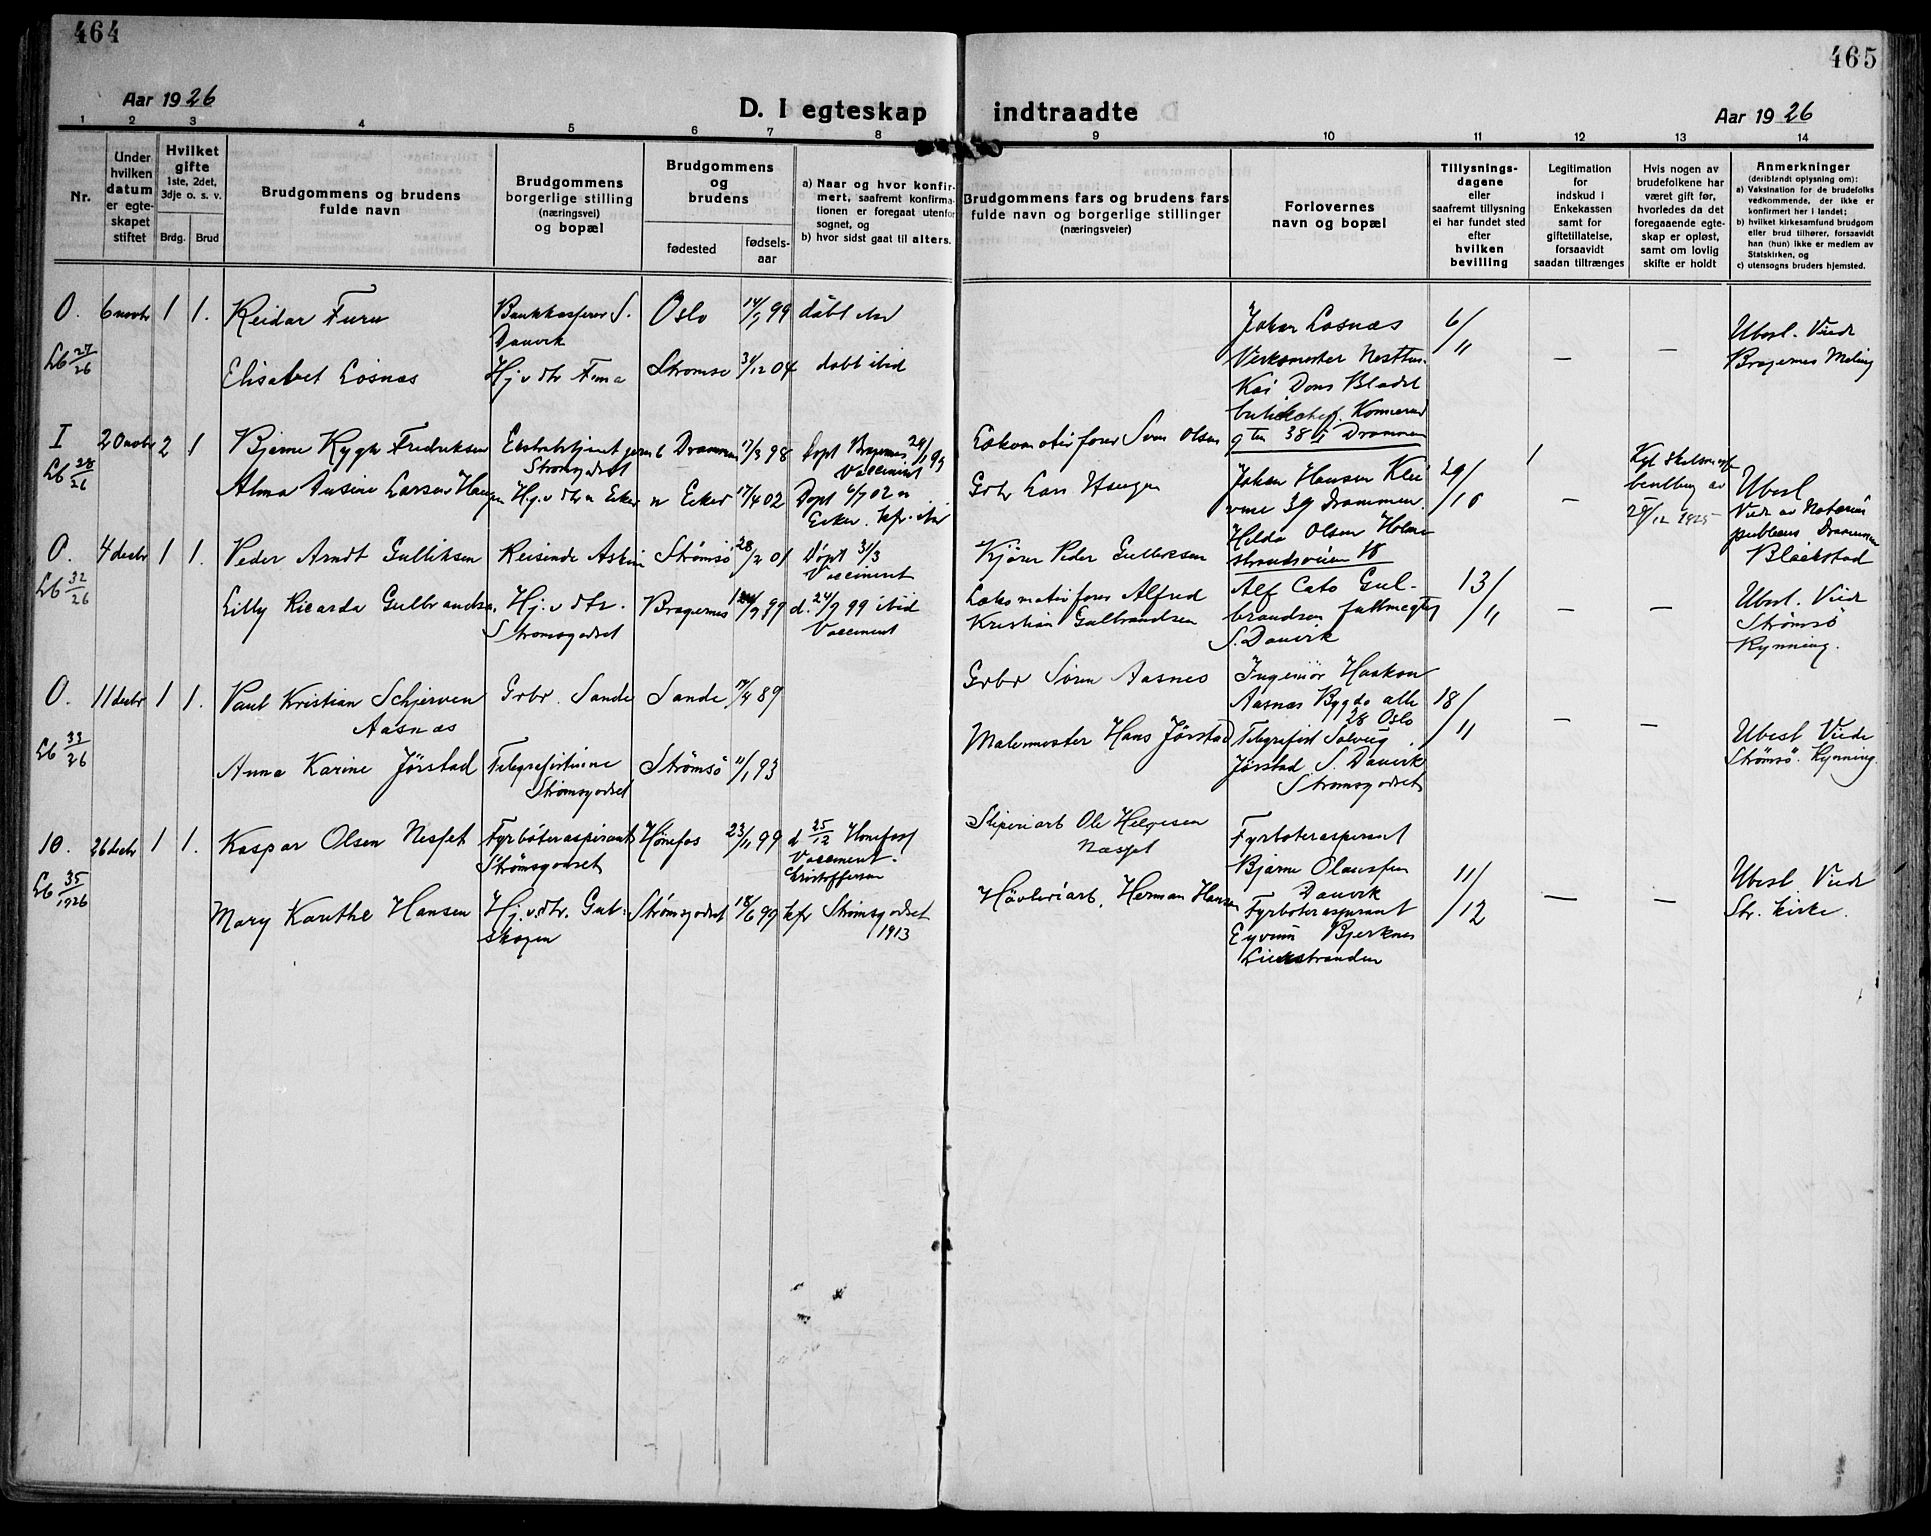 464
465
Aar 1926
D. I egteskap indtraadte
Aar 1926
1 2 3 4 5 6 7 8 9 10 11 12 13 14
Nr.
Under
hvilken
datum
er egte-
skapet
stiftet
Hvilket
gifte
1ste, 2det,
3dje o. s. v.
Brdg. Brud
Brudgommens og brudens
fulde navn
Brudgommens
borgerlige stilling
(næringsvei)
og bopæl
Brudgommens
og
brudens
fødested
fødsels-
aar
a) Naar og hvor konfir-
mert, saafremt konfirma-
tionen er foregaat utenfor
sognet, og
b) hvor sidst gaat til alters.
Brudgommens fars og brudens fars
fulde navn og borgerlige stillinger
(næringsveier)
Forlovernes
navn og bopæl
Tillysnings-
dagene
eller
saafremt tillysning
ei har fundet sted
efter
hvilken
bevilling
Legitimation
for
indskud i
Enkekassen
samt for
giftetillatelse,
forsaavidt
saadan tiltrænges
Hvis nogen av
brudefolkene har
været gift før,
hvorledes da det
foregaaende egte-
skap er opløst,
samt om lovlig
skifte er holdt
Anmerkninger
(deriblandt oplysning om):
a) Vaksination for de brudefolks
vedkommende, der ikke er
konfirmert her i landet;
b) hvilket kirkesamfund brudgom
eller brud tilhører, forsaavidt
han (hun) ikke er medlem av
Statskirken, og
c) utensogns bruders hjemsted.
O. 6 novbr 1 1. Reidar Furu
S.
Danvik
Oslo 14/5 99 døbt
Lb 27/26
Elisabet Losnæs Hj. v. dtr Strømsø 31/12 04 døbt ibid
Johan Losnæs
Verksmester
Kai Dons
38 I Drammen
6/11
—
—
Ubesl. Viede
Bragernes Meling
I 20 novbr 2 1 Bjarne Rygh Fredriksen
Strømsgodset
Drammen 17/3 98 Døpt Bragernes
Vaccineret
Lb 28/26
Alma Larsen Haugen Hj. v. dtr Eker 17/4 02 Døpt
Lokomotivfører Sven Olsen
Gbr Lars Haugen
Johan Hansen
39 Drammen.
Hilda Olsen
strandsveien 18
29/10
—
29/12 1925
Ubesl
Viede av Notarius
publicus Drammen
Blaekstad
O. 4 decbr 1 1. Peder Arndt Gulliksen Reisende Askim Strømsø 28/2 01 Døpt 31/3
Vaccineret
Lb 32/26
Lilly Ricarda Gulbrandsen Hj. v. dtr.
Strømsgodset
Bragernes 99 d. 24/9 99 ibid
Vaccineret
Kjører Peder Gulliksen
Lokomotivfører Alfred
Kristian Gulbrandsen
Alf Cato Gul-
brandsen fuldmegtig
S. Danvik
13/11
—
—
Ubesl. Viede
Strømsø
Rynning.
O. 11 decbr 1 1. Paul Kristian Schjerven
Aasnæs
Gbr. Sande Sande 89
Lb 33/26
Anna Karine Jørstad Telegrafistinne
Strømsgodset
Strømsø 11/1 93
Gbr Søren Aasnes
Malermester Hans Jørstad
Ingeniør Haakon
Aasnæs Bygdø alle
28 Oslo
Telegrafist Solveig
Jørstad S. Danvik
Strømsgodset
18/11
—
—
Ubesl Viede
Strømsø. Rynning.
10. 26 decbr 1 1. Kaspar Olsen Nespet Fyrbøteraspirant
Strømsgodset
Hønefos 23/11 99 d 25/12 Hønefoss
Vaccineret.
Kristoffersen
Lb 35/1926
Mary Kaethe Hansen Hj. v. dtr. Gul-
skogen
Strømsgodset 18/6 99 kfr Strømsgodset
1913
Sliperiarb Ole Helgesen
Næspet
Høvleriarb. Herman Hansen
Fyrbøteraspirant
Bjarne Olaussen
Danvik
Fyrbøteraspirant
Eyvind Bjerknes
Lierstranden
11/12
—
—
Ubesl. Viede
Str. kirke.